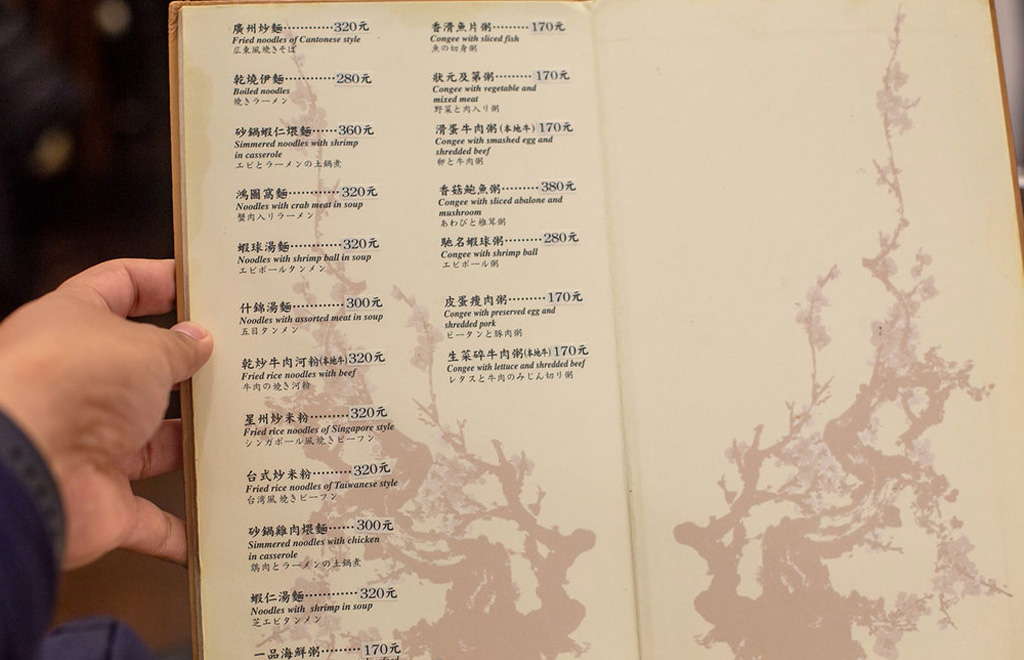 廣州炒麵············320元
Fried noodles of Cantonese style
広東風焼きそば
乾燒伊麵············280元
Boiled noodles
焼きラーメン
砂鍋蝦仁煨麵······360元
Simmered noodles with shrimp
in casserole
エビとラーメンの土鍋煮
鴻圖窩麵············320元
Noodles with crab meat in soup
蟹肉入りラーメン
蝦球湯麵············320元
Noodles with shrimp ball in soup
エビボールタンメン
什錦湯麵············300元
Noodles with assorted meat in soup
五目タンメン
乾炒牛肉河粉(本地牛)320元
Fried rice noodles with beef
牛肉の焼き河粉
星州炒米粉·········320元
Fried rice noodles of Singapore style
シンガポール風焼きビーフン
台式炒米粉·········320元
Fried rice noodles of Taiwanese style
台湾風焼きビーフン
砂鍋雞肉煨麵······300元
Simmered noodles with chicken
in casserole
鶏肉とラーメンの土鍋煮
蝦仁湯麵············320元
Noodles with shrimp in soup
芝エビタンメン
一品海鮮粥·········170元
香滑魚片粥·········170元
Congee with sliced fish
魚の切身粥
狀元及第粥·········170元
Congee with vegetable and
mixed meat
野菜と肉入り粥
滑蛋牛肉粥(本地牛)170元
Congee with smashed egg and
shredded beef
卵と牛肉粥
香菇鮑魚粥·········380元
Congee with sliced abalone and
mushroom
あわびと椎茸粥
馳名蝦球粥·········280元
Congee with shrimp ball
エビボール粥
皮蛋瘦肉粥·········170元
Congee with preserved egg and
shredded pork
ピータンと豚肉粥
生菜碎牛肉粥(本地牛)170元
Congee with lettuce and shredded beef
レタスと牛肉のみじん切り粥